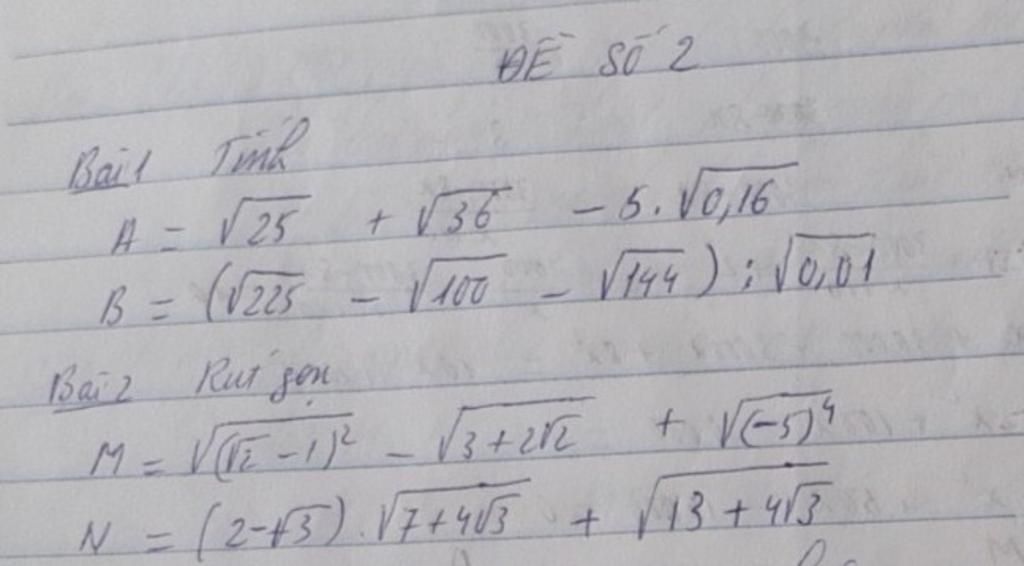 ĐỀ SỐ 2
Bài 1 Tính
A = √25 + √36 - 5.√0,16
B = (√225 - √100 - √144) : √0,01
Bài 2 Rút gọn
M = √(√2 - 1)² - √3 + 2√2 + √(-5)⁴
N = (2 - √3).√7 + 4√3 + √13 + 4√3